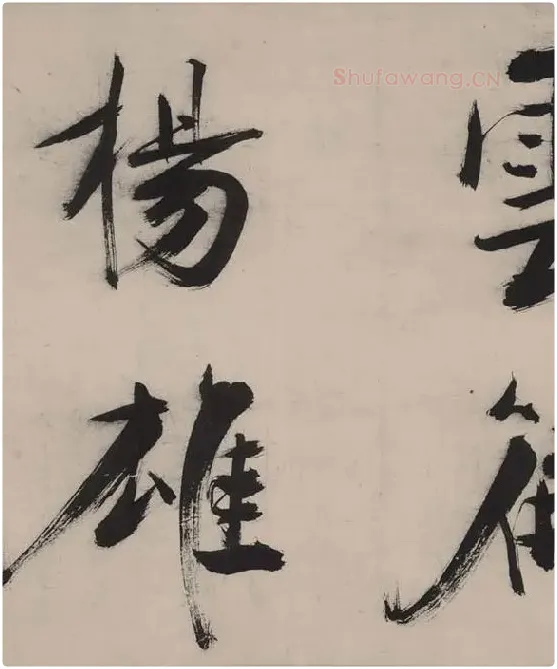 Shufawang.CN
雲
楊雄